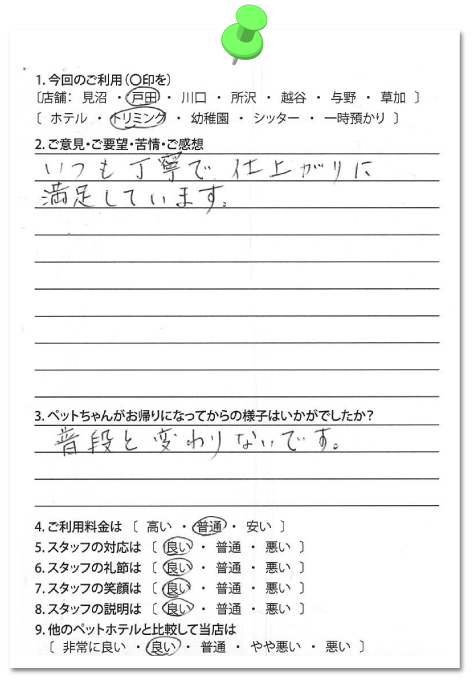 1. 今回のご利用(〇印を)
〔店舗： 見沼 ・ 戸田 ・ 川口 ・ 所沢 ・ 越谷 ・ 与野 ・ 草加 〕
〔 ホテル ・ トリミング ・ 幼稚園 ・ シッター ・ 一時預かり 〕
2. ご意見・ご要望・苦情・ご感想
いつも丁寧で仕上がりに
満足しています。
3. ペットちゃんがお帰りになってからの様子はいかがでしたか?
普段と変わりないです。
4. ご利用料金は 〔 高い ・ 普通 ・ 安い 〕
5. スタッフの対応は 〔 良い ・ 普通 ・ 悪い 〕
6. スタッフの礼節は 〔 良い ・ 普通 ・ 悪い 〕
7. スタッフの笑顔は 〔 良い ・ 普通 ・ 悪い 〕
8. スタッフの説明は 〔 良い ・ 普通 ・ 悪い 〕
9. 他のペットホテルと比較して当店は
〔 非常に良い ・ 良い ・ 普通 ・ やや悪い ・ 悪い 〕